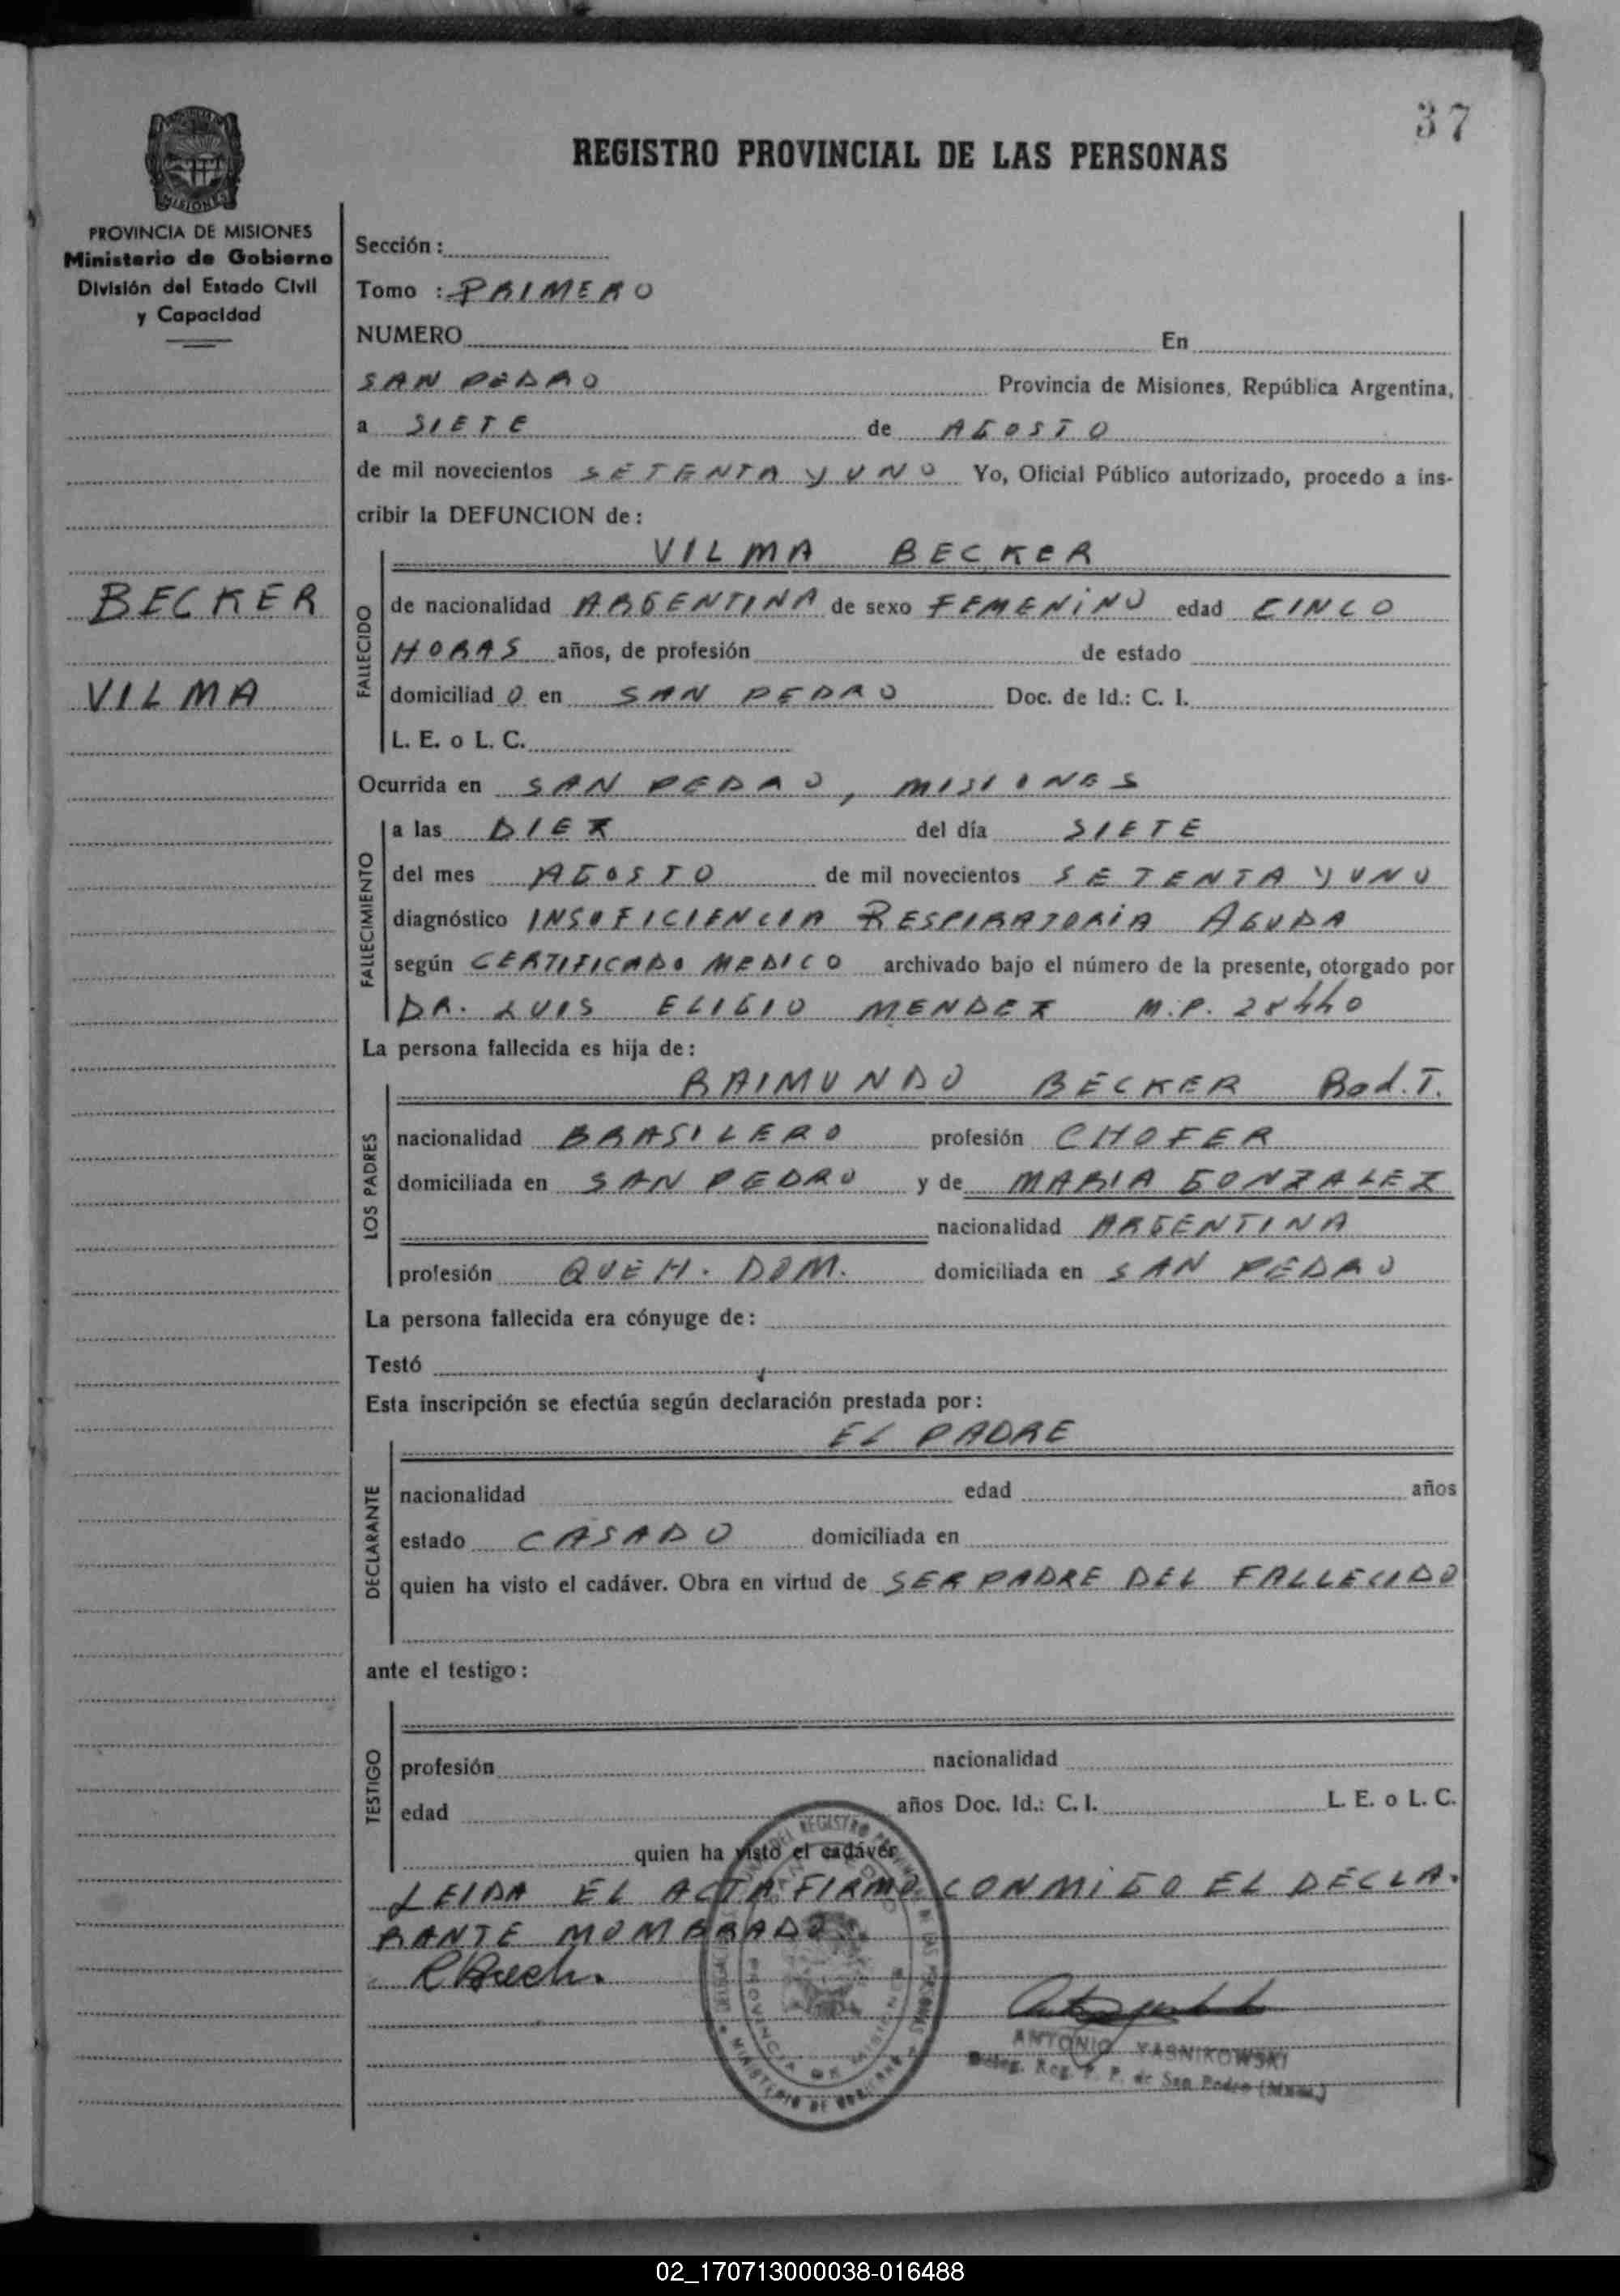 37
REGISTRO PROVINCIAL DE LAS PERSONAS
MISIONES
PROVINCIA DE MISIONES
Ministerio de Gobierno
División del Estado Civil
y Capacidad
BECKER
VILMA
Sección :
Tomo : PRIMERO
NUMERO En
SAN PEDRO Provincia de Misiones, República Argentina,
a SIETE de AGOSTO
de mil novecientos SETENTA Y UNO Yo, Oficial Público autorizado, procedo a ins-
cribir la DEFUNCION de :
VILMA BECKER
FALLECIDO
de nacionalidad ARGENTINA de sexo FEMENINO edad CINCO
HORAS años, de profesión de estado
domiciliad O en SAN PEDRO Doc. de Id.: C. I.
L. E. o L. C.
Ocurrida en SAN PEDRO, MISIONES
FALLECIMIENTO
a las DIEZ del día SIETE
del mes AGOSTO de mil novecientos SETENTA Y UNO
diagnóstico INSUFICIENCIA RESPIRATORIA AGUDA
según CERTIFICADO MEDICO archivado bajo el número de la presente, otorgado por
DR. LUIS ELIGIO MENDEZ M.P. 28440
La persona fallecida es hija de :
RAIMUNDO BECKER Rod. T.
LOS PADRES
nacionalidad BRASILERO profesión CHOFER
domiciliada en SAN PEDRO y de MARIA GONZALEZ
nacionalidad ARGENTINA
profesión QUEH. DOM. domiciliada en SAN PEDRO
La persona fallecida era cónyuge de :
Testó
Esta inscripción se efectúa según declaración prestada por :
EL PADRE
DECLARANTE
nacionalidad edad años
estado CASADO domiciliada en
quien ha visto el cadáver. Obra en virtud de SER PADRE DEL FALLECIDO
ante el testigo :
TESTIGO
profesión nacionalidad
edad años Doc. Id.: C. I. L. E. o L. C.
quien ha visto el cadáver
LEIDA EL ACTA FIRMO CONMIGO EL DECLA-
RANTE NOMBRADO.
ANTONIO YASNIKOWSKI
Deleg. Reg. P. P. de San Pedro (Mnes.)
PROVINCIA DE MISIONES
MINISTERIO DE GOBIERNO
02_170713000038-016488